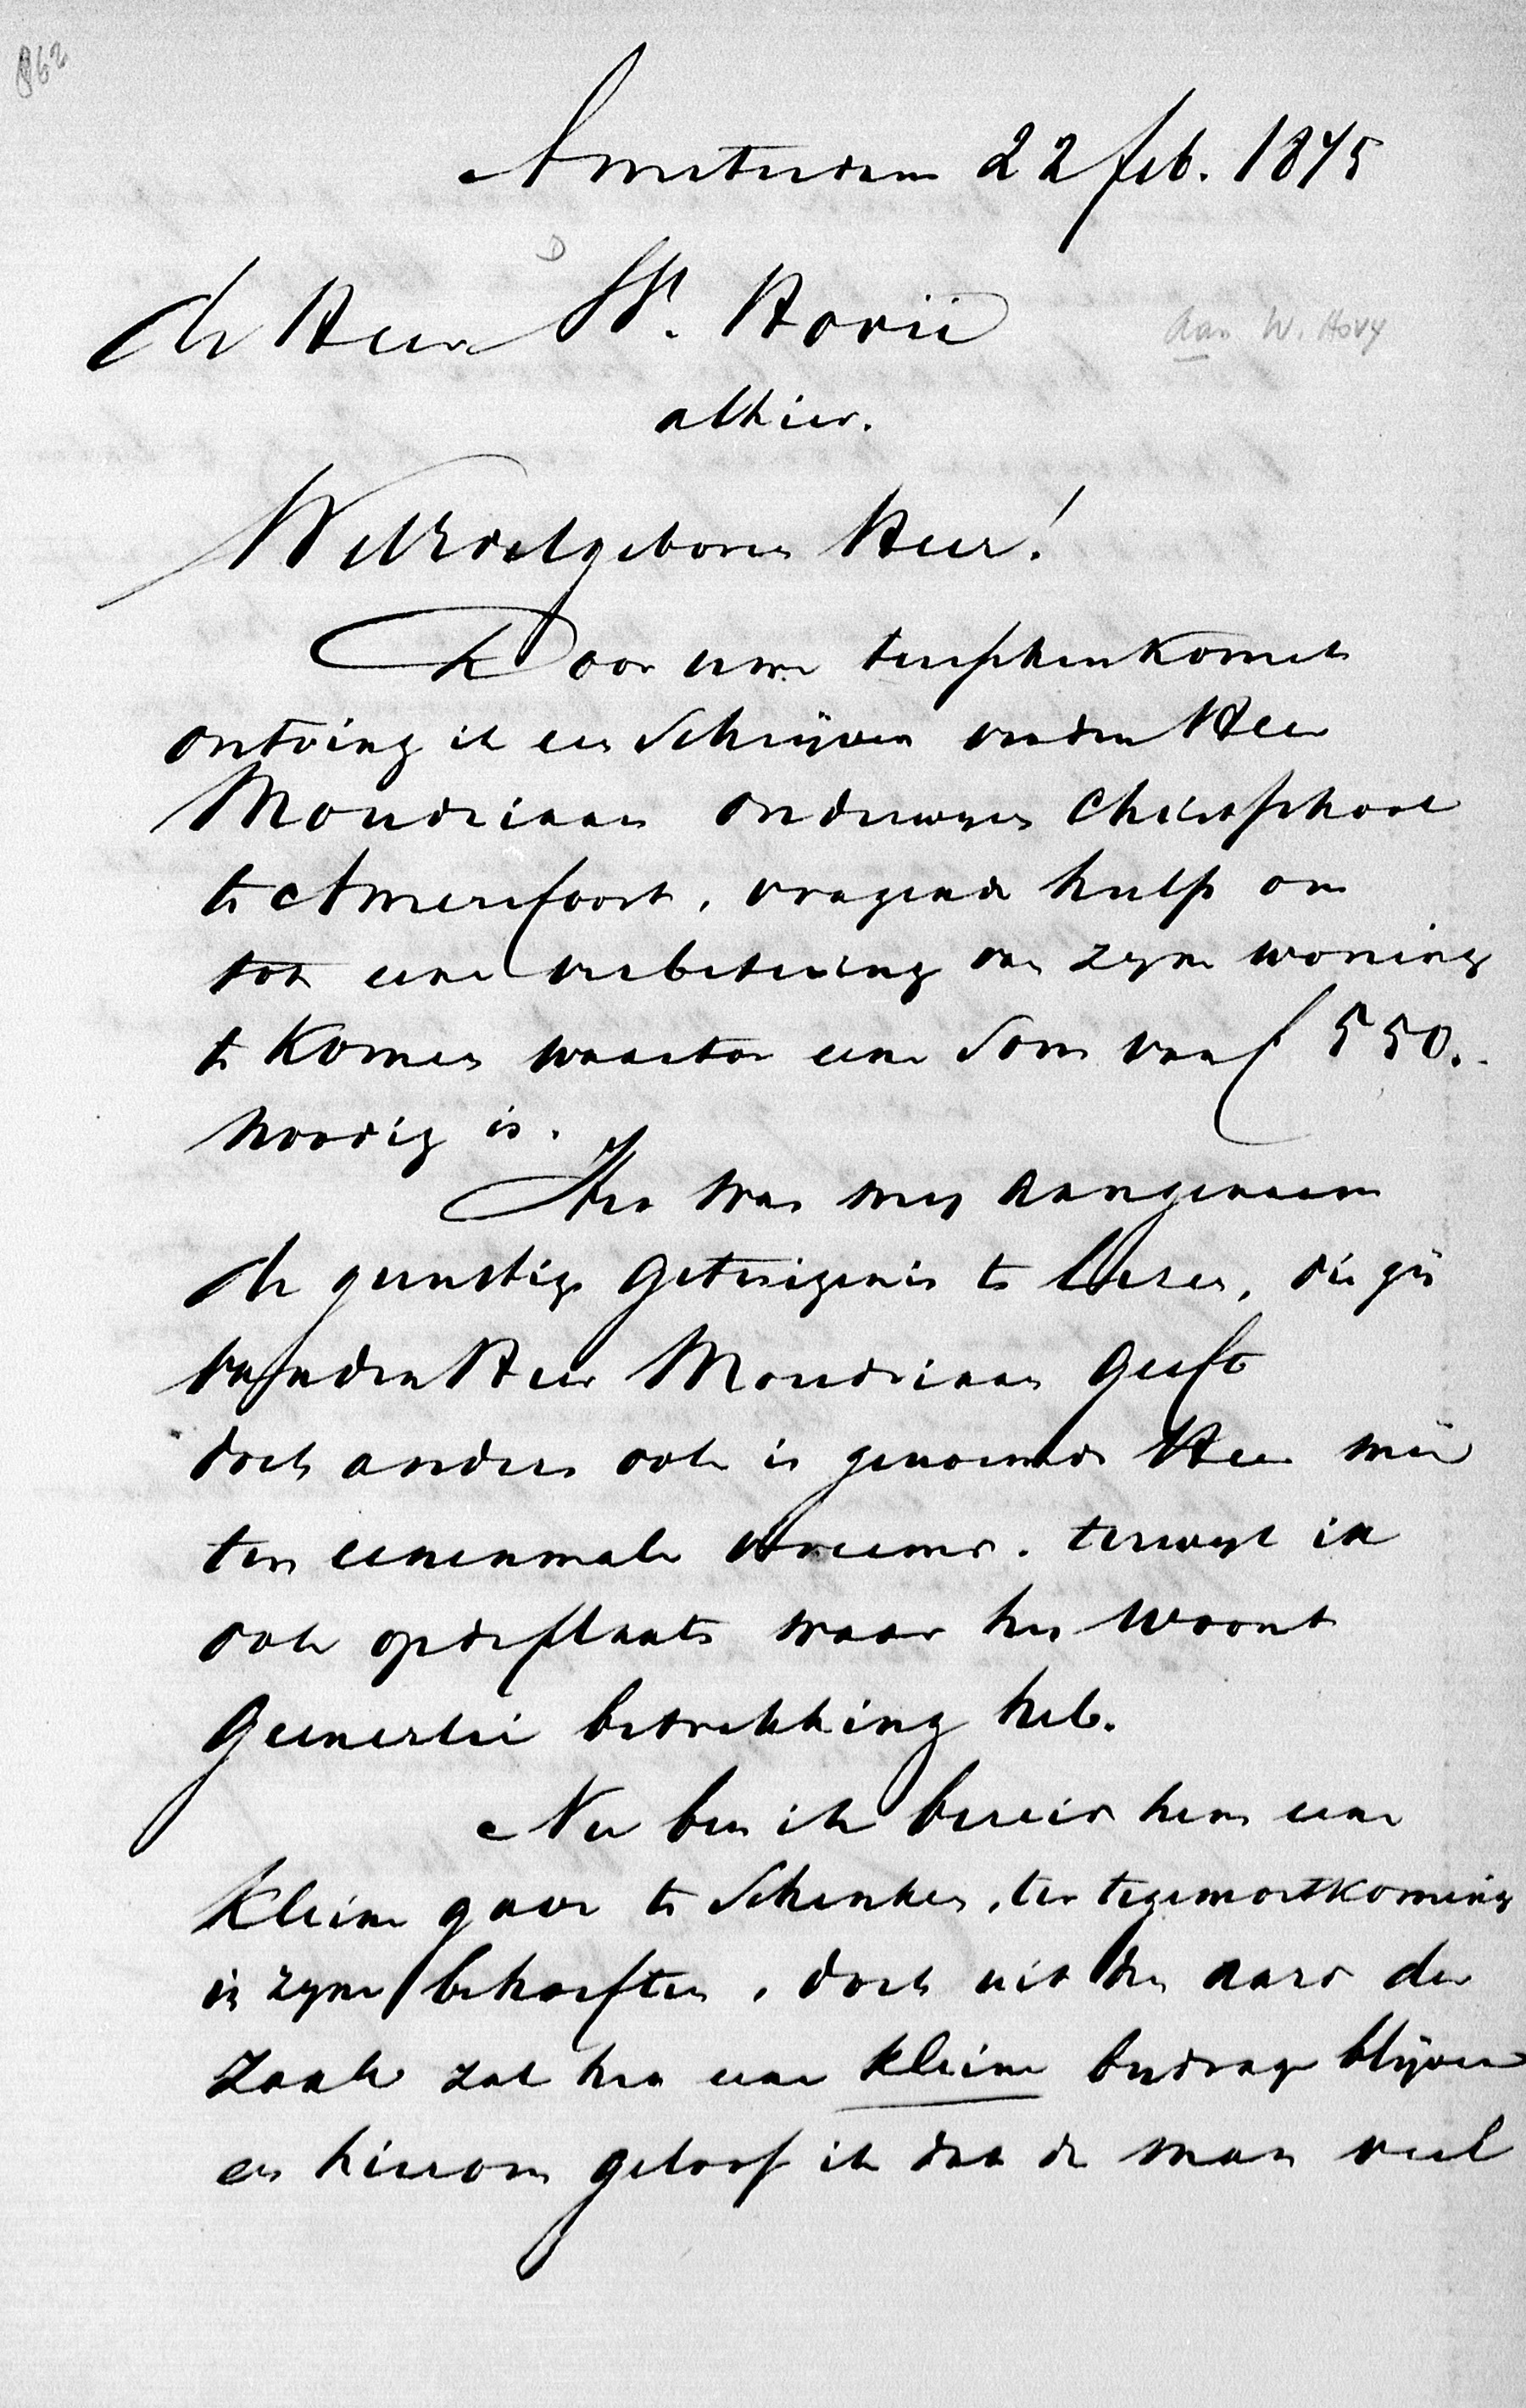 862
Amsterdam 22 feb. 1875
D
de Heer W. Hovii
Aan W. Hovy
alhier.
WelEdelgeboren Heer!
Door uwe tusschenkomst
ontving ik een schrijven van den Heer
Mondriaan onderwyzer Christ school
te Amersfoort, vragende hulp om
tot eene verbetering van zyne woning
te komen waartoe eene som van f 550.-
noodig is.
Het was my aangenaam
de gunstige getuigenis te lezen, die gij
van den Heer Mondriaan geeft
doch anders ook is genoemde Heer mij
ten eenenmale vreemd. terwyl ik
ook op de plaats waar hy woont
geenerlei betrekking heb.
Nu ben ik bereid hem eene
kleine gave te schenken, ter tegemoetkoming
in zyne behoeften, doch uit den aard der
zaak zal het eene kleine bydrage blijven
en hierom geloof ik dat de man veel